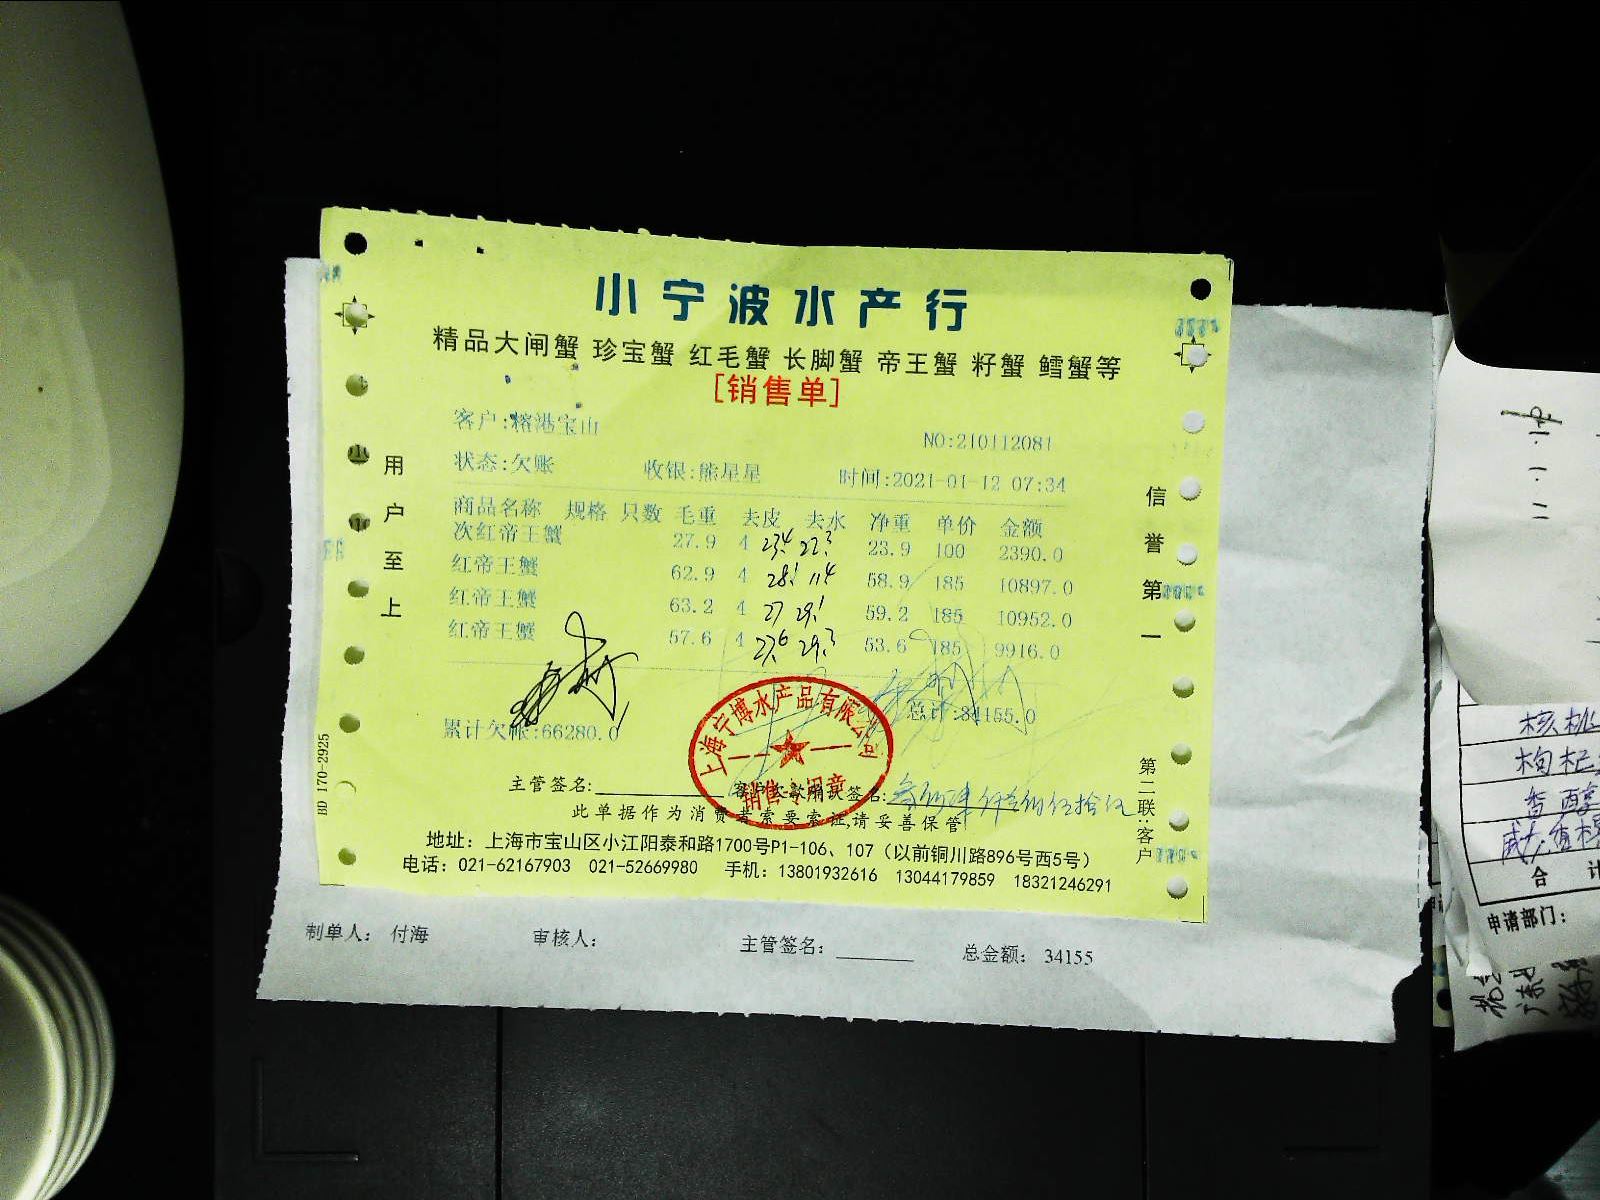 小宁波水产行
精品大闸蟹 珍宝蟹 红毛蟹 长脚蟹 帝王蟹 籽蟹 鳕蟹等
[销售单]
客户:榕港宝山
NO:210112081
状态:欠账 收银:熊星星 时间:2021-01-12 07:34
商品名称 规格 只数 毛重 去皮 去水 净重 单价 金额
次红帝王蟹 27.9 4 23.9 100 2390.0
红帝王蟹 62.9 4 58.9 185 10897.0
红帝王蟹 63.2 4 59.2 185 10952.0
红帝王蟹 57.6 4 53.6 185 9916.0
总计:34155.0
累计欠帐:66280.0
上海宁博水产品有限公司
销售专用章
主管签名:
此单据作为消费者索要索证,请妥善保管
地址：上海市宝山区小江阳泰和路1700号P1-106、107（以前铜川路896号西5号）
电话：021-62167903 021-52669980 手机：13801932616 13044179859 18321246291
用户至上
信誉第一
第二联:客户
BD 170-2925
制单人： 付海 审核人： 主管签名： 总金额： 34155
核桃
枸杞
香醇
合 计
申请部门：